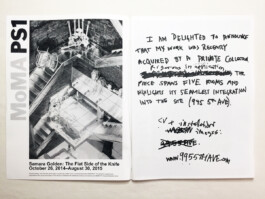 MoMA PS1
Samara Golden: The Flat Side of the Knife
October 26, 2014–August 30, 2015
I AM DELIGHTED TO ANNOUNCE
THAT MY WORK WAS RECENTLY
ACQUIRED BY A PRIVATE COLLECTOR
THE
PIECE SPANS FIVE ROOMS AND
HIGHLIGHTS ITS SEAMLESS INTEGRATION
INTO THE SITE (995 5th AVE).
CV + installation
images:
www.9955thAVE.com